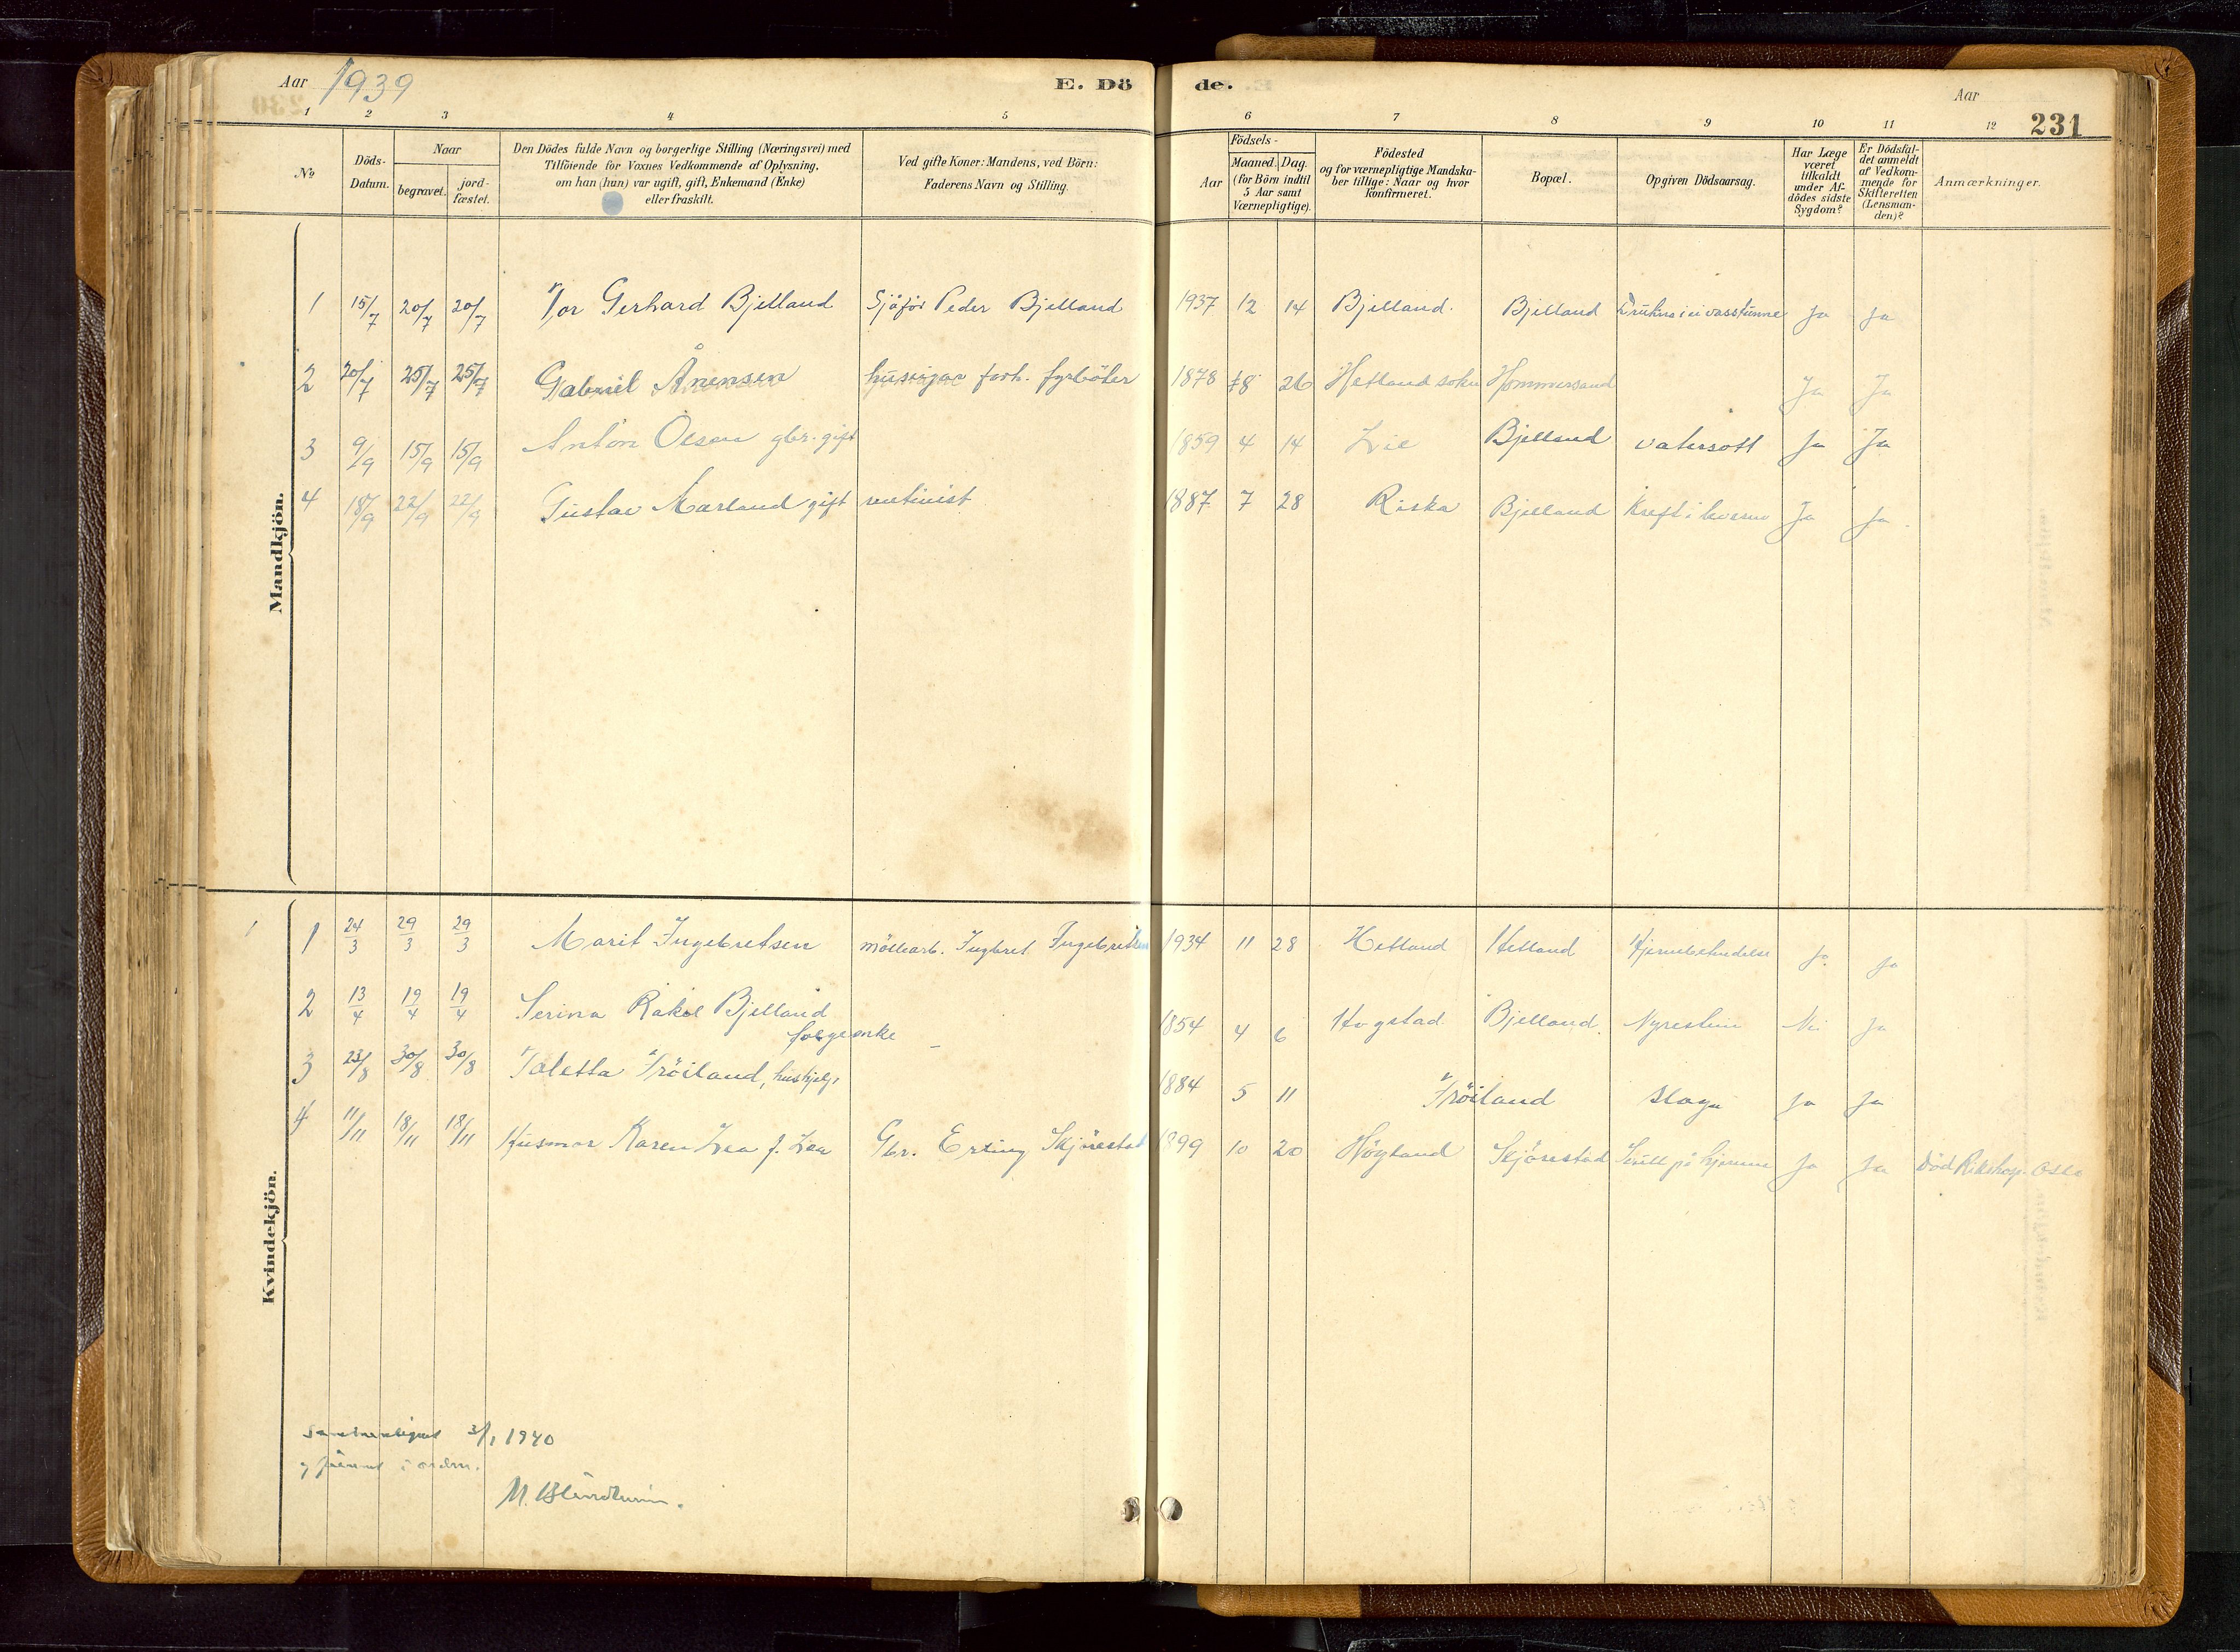 Aar 1939
E. Dö de.
Aar
231
1 2 3 4 5 6 7 8 9 10 11 12
No
Döds-Datum.
Naar
begravet.
jord-fæstet.
Den Dödes fulde Navn og borgerlige Stilling (Næringsvei) med
Tilföiende for Voxnes Vedkommende af Oplysning,
om han (hun) var ugift, gift, Enkemand (Enke)
eller fraskilt.
Ved gifte Koner: Mandens, ved Börn:
Faderens Navn og Stilling.
Födsels-
Aar
Maaned. Dag.
(for Börn indtil
5 Aar samt
Værnepligtige).
Födested
og for værnepligtige Mandska-
ber tillige: Naar og hvor
konfirmeret.
Bopæl.
Opgiven Dödsaarsag.
Har Læge
været
tilkaldt
under Af-
dödes sidste
Sygdom?
Er Dödsfal-
det anmeldt
af Vedkom-
mende for
Skifteretten
(Lensman-
den)?
Anmærkninger.
Mandkjön.
1 15/7 20/7 20/7 Tor Gerhard Bjelland Sjåfør Peder Bjelland 1937 12 14 Bjelland. Bjelland Drukna i ei vasstunne Ja Ja
2 20/7 25/7 25/7 Gabriel Ånensen huseigar forh. fyrbøter 1878 8 26 Hetland sokn Hommersand Ja Ja
3 9/9 15/9 15/9 Anton Olsen gbr. gift 1859 4 14 Lie Bjelland vatersott Ja Ja
4 18/9 22/9 22/9 Gustav Aarland gift 1887 7 28 Riska Bjelland Kreft i Ja Ja
Kvindekjön.
1 24/3 29/3 29/3 Marit Ingebretsen möllearb. Ingbret Ingebretsen 1934 11 28 Hetland Hetland Hjernebetendelse Ja Ja
2 13/4 19/4 19/4 Serina Rakel Bjelland
folgeenke – 1854 4 6 Hogstad Bjelland. Nyrestein Nei Ja
3 23/8 30/8 30/8 Taletta Tröiland, hushjelp, 1884 5 11 Tröiland Slag Ja Ja
4 11/11 18/11 18/11 Husmor Karen Lea f. Lea Gbr. Erling Skjörestad 1899 10 20 Höyland Skjörestad Svull på hjernne Ja Ja Död Rikshosp. Oslo
Sammenlignet 3/1 1940
og funnet i orden.
M. Blindheim.